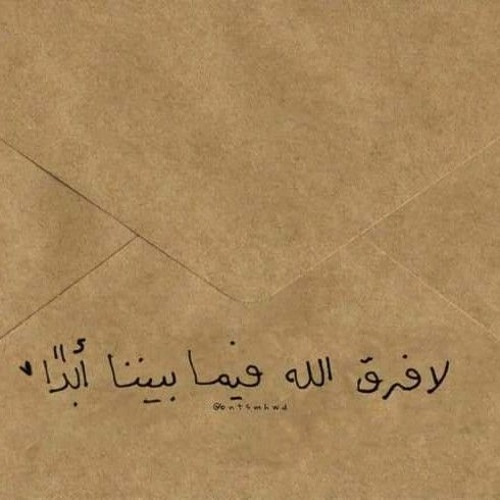 لا فرق الله فيما بيننا أبدًا
@ontsmhwd